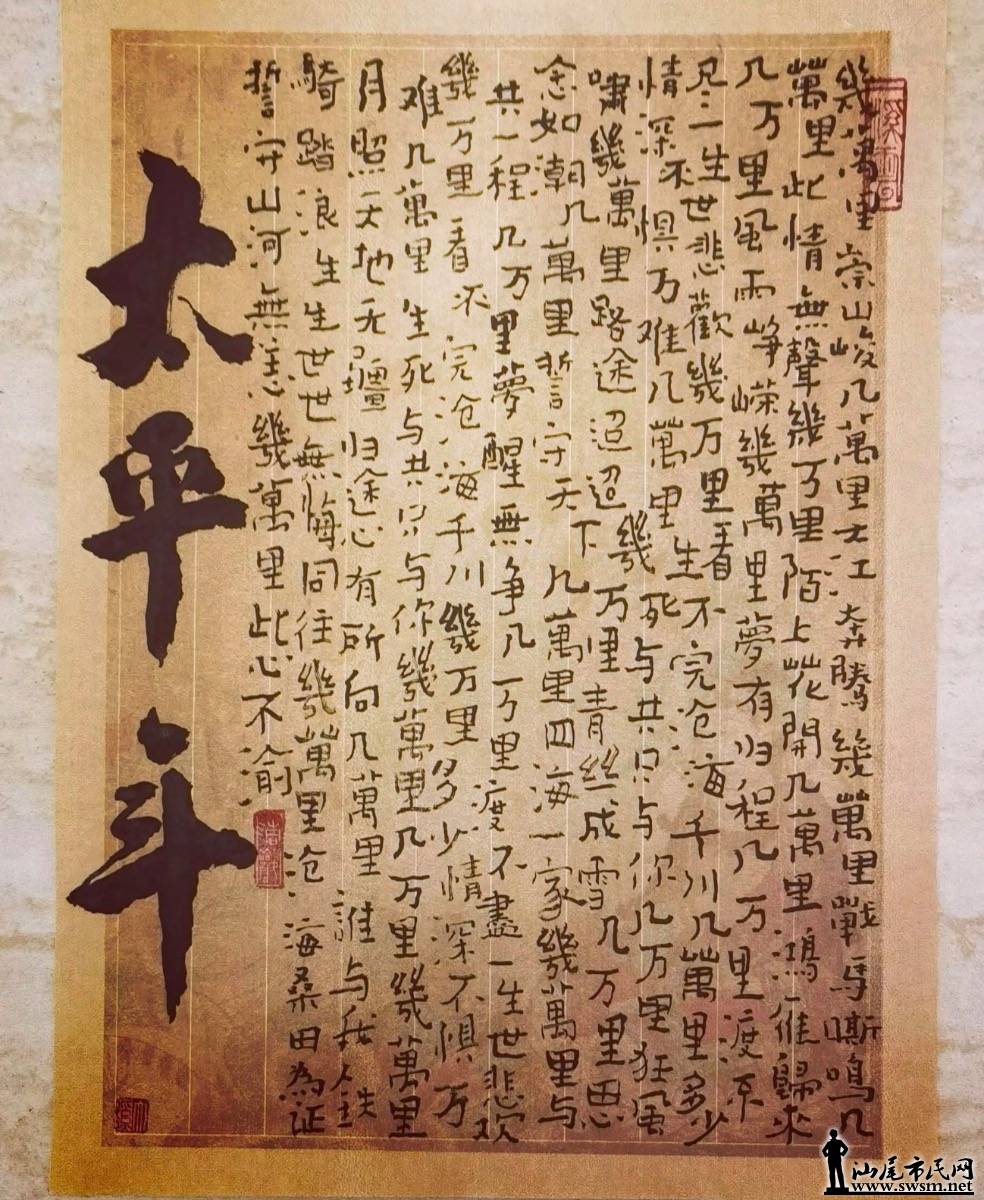 幾萬里崇山峻几萬里大江奔腾幾萬里戰馬嘶鳴几
萬里此情無聲幾万里陌上花開几萬里鴻雁歸來
几万里風雨峥嵘幾萬里夢有归程几万里渡不
尽一生世悲歡幾万里看不完沧海千川几萬里多少
情深不惧万难几萬里生死与共只与你几万里狂風
嘯幾萬里路途迢迢幾万里青丝成雪几万里思
念如潮几萬里誓守天下几萬里四海一家幾萬里与
共一程几万里夢醒無争几万里渡不盡一生世悲欢
幾万里看不完沧海千川幾万里多少情深不惧万
难几萬里生死与共只与你幾萬里几万里幾萬里
月照天地无疆归途心有所向几萬里誰与我铁
騎踏浪生生世世無悔同往幾萬里沧海桑田為证
誓守山河無恙幾萬里此心不渝
太平年
汕尾市民网
www.swsm.net